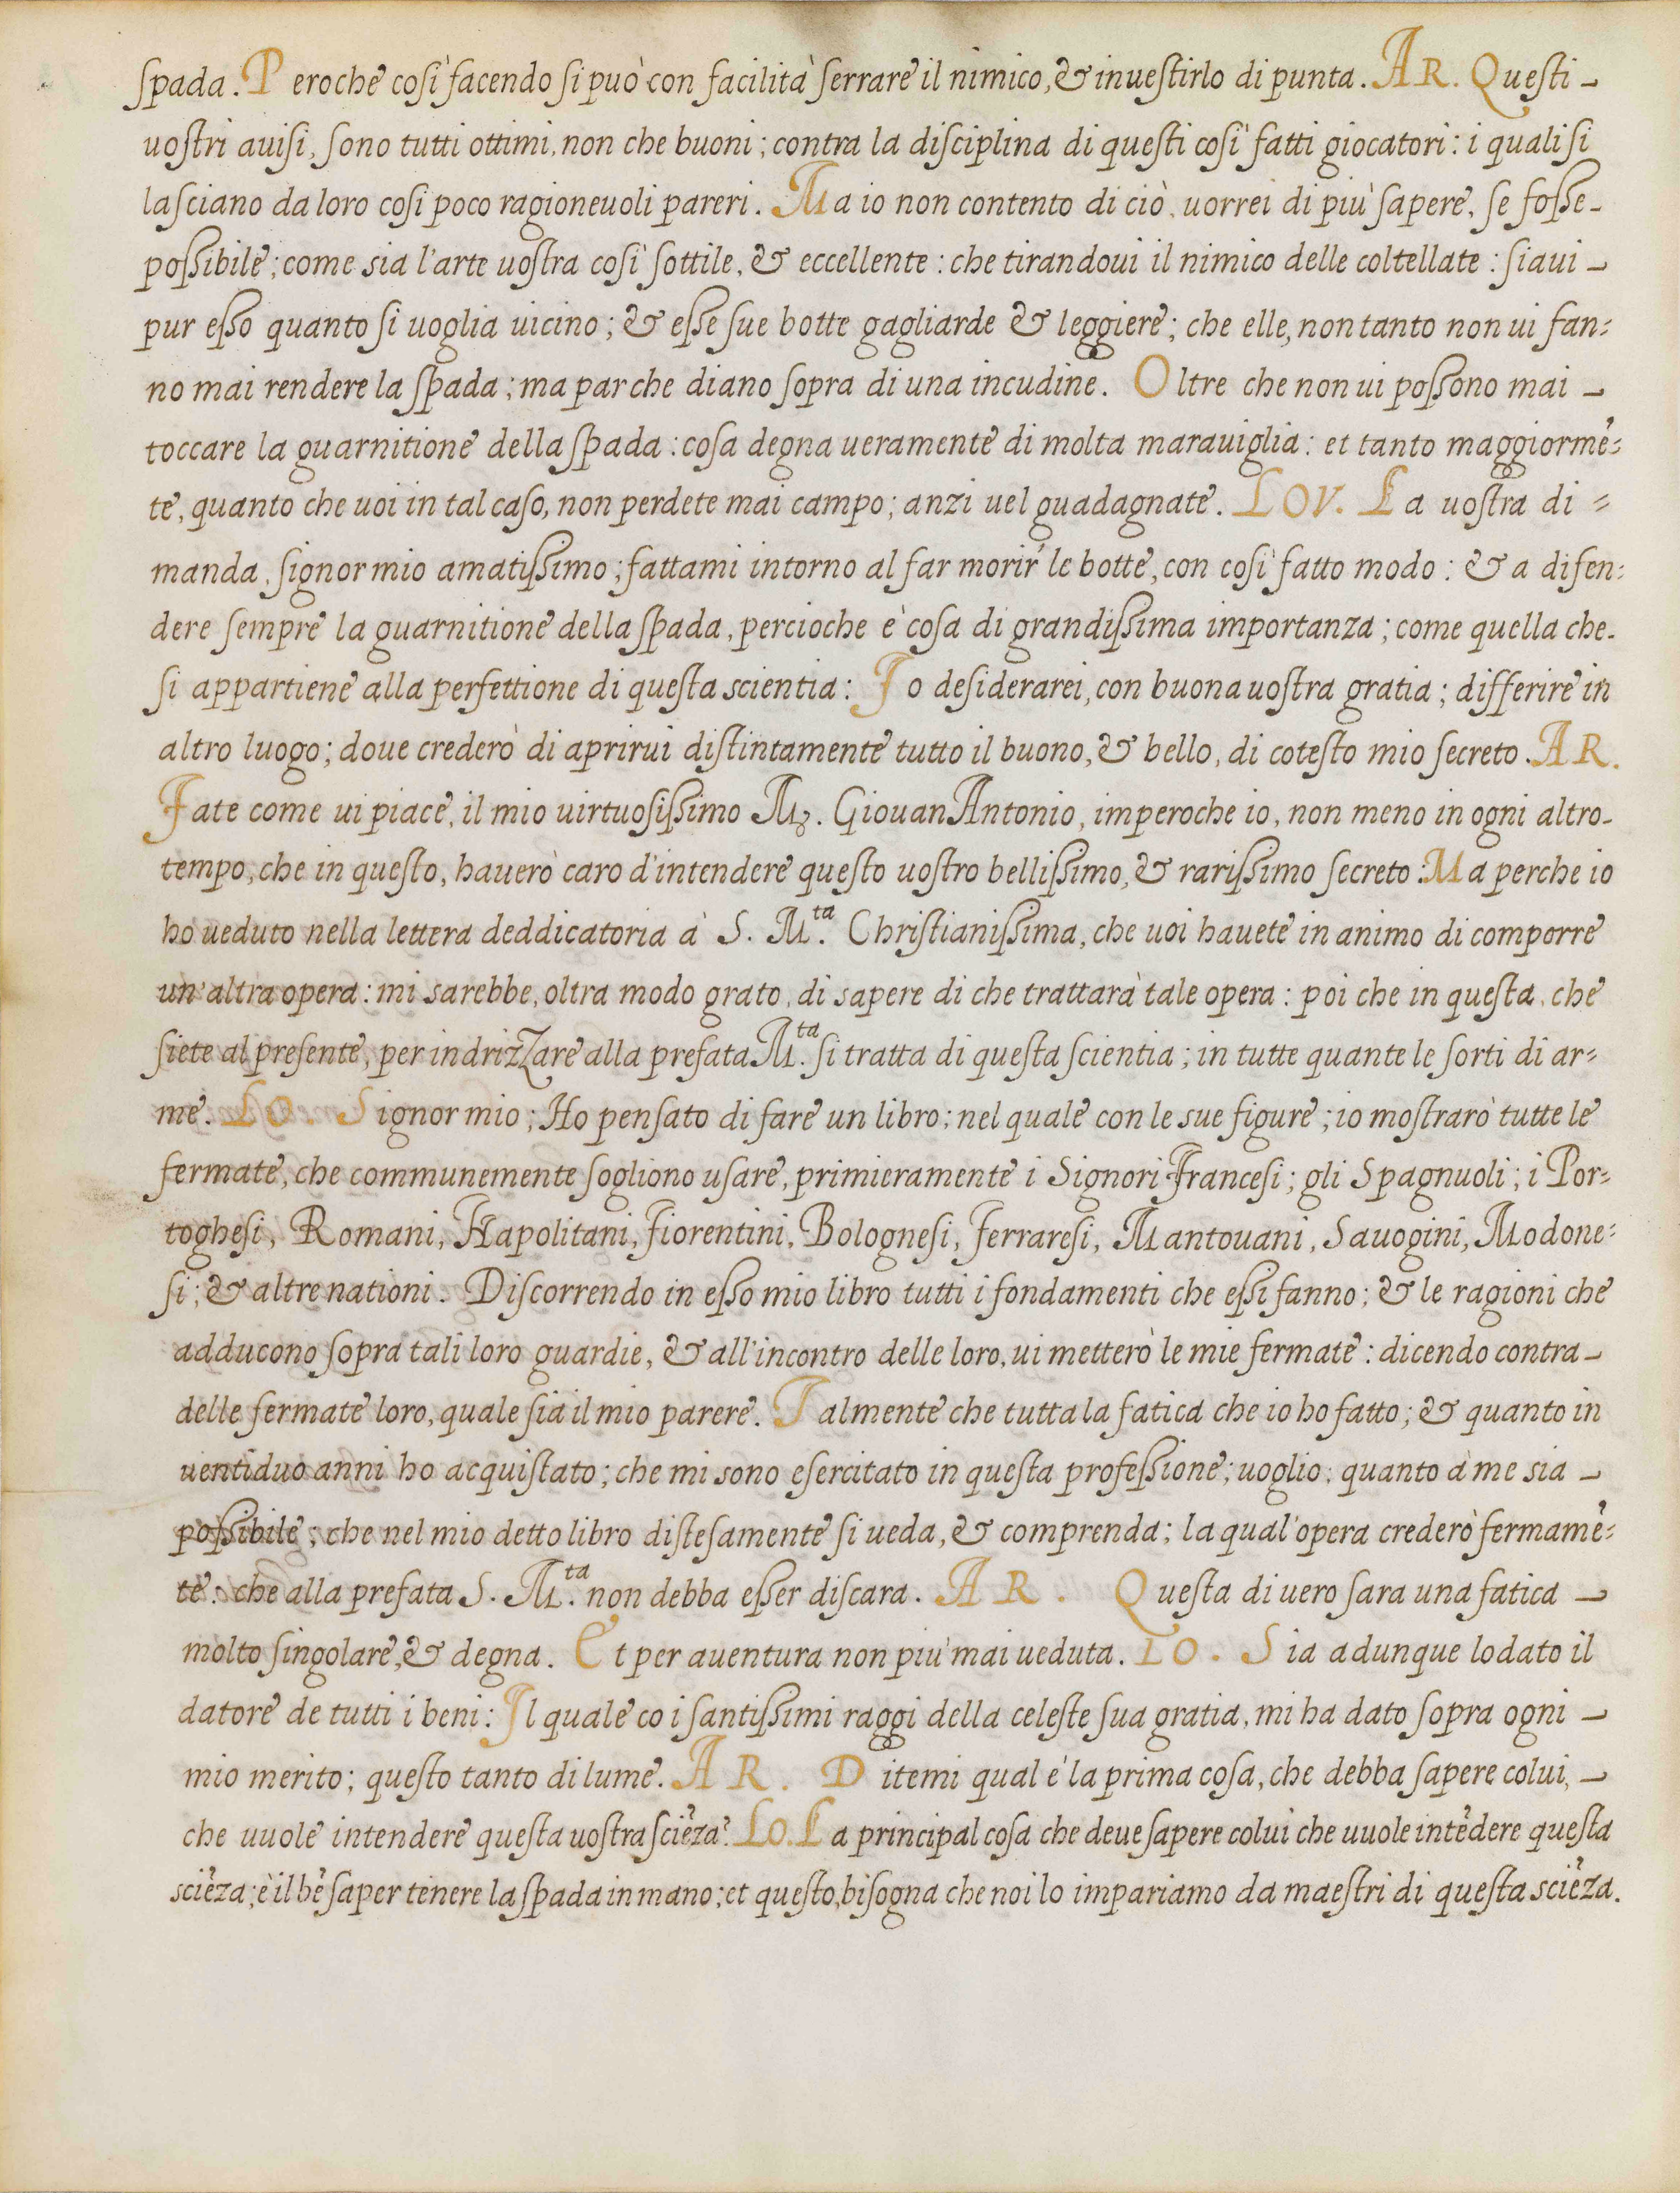 spada. Peroche così facendo si può con facilità serrare il nimico, & inuestirlo di punta. AR. Questi
uostri auisi, sono tutti ottimi, non che buoni; contra la disciplina di questi così fatti giocatori: i quali si
lasciano da loro così poco ragioneuoli pareri. Ma io non contento di ciò, uorrei di più sapere, se fosse
possibile; come sia l'arte uostra così sottile, & eccellente: che tirandoui il nimico delle coltellate: siaui
pur esso quanto si uoglia uicino; & esse sue botte gagliarde & leggiere; che elle, non tanto non ui fan=
no mai rendere la spada; ma par che diano sopra di una incudine. Oltre che non ui possono mai
toccare la guarnitione della spada: cosa degna ueramente di molta marauiglia: et tanto maggiormē=
te, quanto che uoi in tal caso, non perdete mai campo; anzi uel guadagnate. LOV. La uostra di=
manda, signor mio amatissimo; fattami intorno al far morir le botte, con così fatto modo: & a difen=
dere sempre la guarnitione della spada, percioche è cosa di grandissima importanza; come quella che
si appartiene alla perfettione di questa scientia: Io desiderarei, con buona uostra gratia; differire in
altro luogo; doue crederò di aprirui distintamente tutto il buono, & bello, di cotesto mio secreto. AR.
Fate come ui piace, il mio uirtuosissimo Mʒ. Giouan Antonio, imperoche io, non meno in ogni altro
tempo, che in questo, hauerò caro d'intendere questo uostro bellissimo, & rarissimo secreto: Ma perche io
ho ueduto nella lettera deddicatoria à S. M.ta Christianissima, che uoi hauete in animo di comporre
un'altra opera: mi sarebbe, oltra modo grato, di sapere di che trattarà tale opera: poi che in questa, che
siete al presente, per indrizzare alla prefata M.ta si tratta di questa scientia; in tutte quante le sorti di ar=
me. LO. Signor mio; Ho pensato di fare un libro; nel quale con le sue figure; io mostrarò tutte le
fermate, che communemente sogliono usare, primieramente i Signori Francesi; gli Spagnuoli; i Por=
toghesi, Romani, Napolitani, Fiorentini, Bolognesi, Ferraresi, Mantouani, Sauogini, Modone=
si; & altre nationi. Discorrendo in esso mio libro tutti i fondamenti che essi fanno; & le ragioni che
adducono sopra tali loro guardie, & all'incontro delle loro, ui metterò le mie fermate: dicendo contra
delle fermate loro, quale sia il mio parere. Talmente che tutta la fatica che io ho fatto; & quanto in
uentiduo anni ho acquistato; che mi sono esercitato in questa professione; uoglio; quanto à me sia
possibile; che nel mio detto libro distesamente si ueda, & comprenda; la qual'opera crederò fermamē=
te: che alla prefata S. M.ta non debba esser discara. AR. Questa di uero sara una fatica
molto singolare, & degna. Et per auentura non più mai ueduta. LO. Sia adunque lodato il
datore de tutti i beni: Il quale co i santissimi raggi della celeste sua gratia, mi ha dato sopra ogni
mio merito; questo tanto di lume. AR. Ditemi qual è la prima cosa, che debba sapere colui,
che uuole intendere questa uostra sciēza? LO. La principal cosa che deue sapere colui che uuole intēdere questa
sciēza; è il bē saper tenere la spada in mano; et questo, bisogna che noi lo impariamo da maestri di questa sciēza.